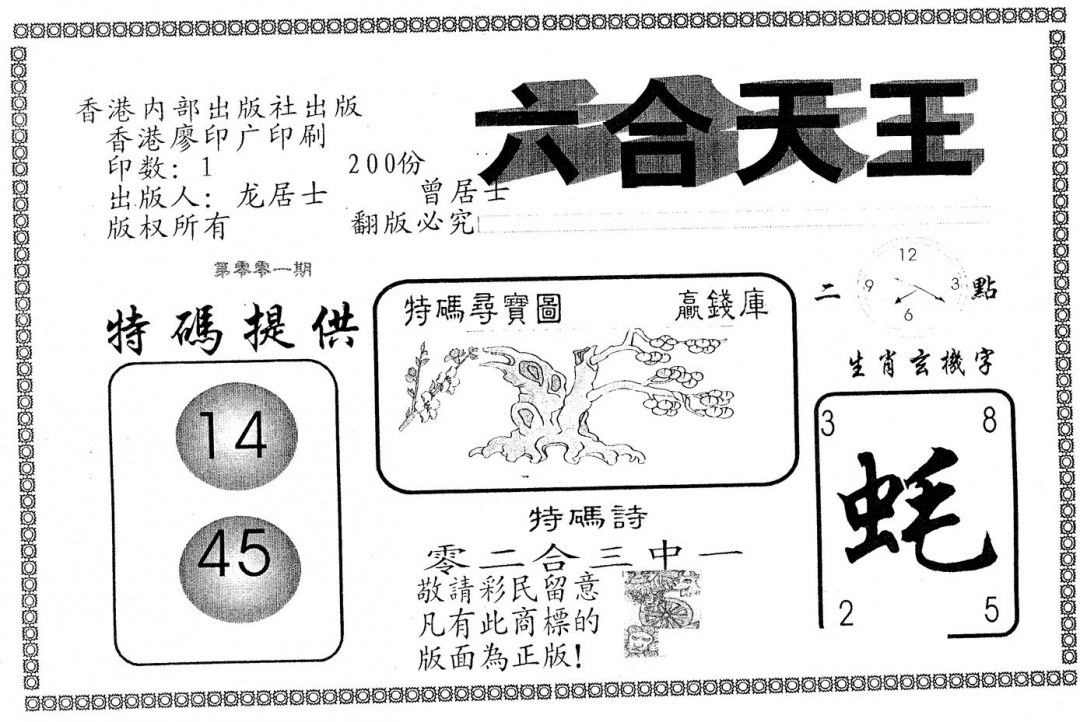 六合天王
香港内部出版社出版
香港廖印广印刷
印数：1 200份
出版人：龙居士 曾居士
版权所有 翻版必究
第零零一期
特碼提供
14
45
特碼尋寶圖 贏錢庫
特碼詩
零二合三中一
敬請彩民留意
凡有此商標的
版面為正版！
二 點
12
9 3
6
生肖玄機字
3 8
蚝
2 5